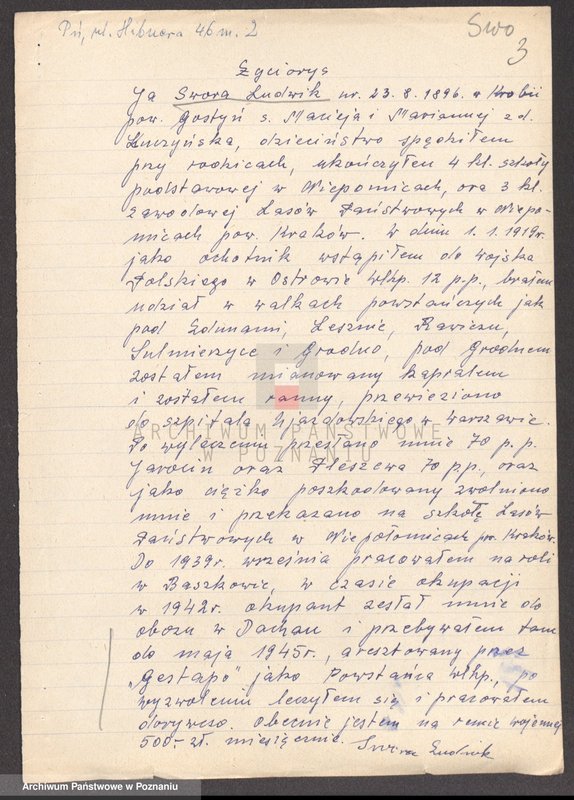 Pń, ul. Hibnera 46 m. 2
Swo
3
Życiorys
Ja Swora Ludwik ur. 23. 8. 1896. w Krobii
pow. Gostyń s. Macieja i Marianny z d.
dzieciństwo spędziłem
przy rodzicach, ukończyłem 4 kl. szkoły
podstawowej w Niepomicach, ora 3 kl.
zawodowej Lasów Państwowych w Niepo-
micach pow. Kraków. W dniu 1. 1. 1919r.
jako ochotnik wstąpiłem do wojska
Polskiego w Ostrowie Wlkp. 12 p.p., brałem
udział w walkach powstańczych jak
pod Zdunami, Lesznie, Rawiczu,
Sulmierzyce i Grodno, pod Grodnem
zostałem mianowany kapralem
i zostałem ranny, przewieziono
do szpitala Ujazdowskiego w Warszawie.
Po wyleczeniu przesłano mnie 70 p.p.
Jarocin oraz Pleszewa 70 p.p., oraz
jako ciężko poszkodowany zwolniono
mnie i przekazano na szkołę Lasów
Państwowych w Niepołomicach pow. Kraków.
Do 1939r. września pracowałem na roli
w Baszkowie, w czasie okupacji
w 1942r. okupant zesłał mnie do
obozu w Dachau i przebywałem tam
do maja 1945r., aresztowany przez
"Gestapo" jako Powstańca Wlkp., po
wyzwoleniu leczyłem się i pracowałem
dorywczo. Obecnie jestem na rencie wojennej
500.- zł. miesięcznie. Swora Ludwik
ARCHIWUM PAŃSTWOWE
W POZNANIU
Archiwum Państwowe w Poznaniu